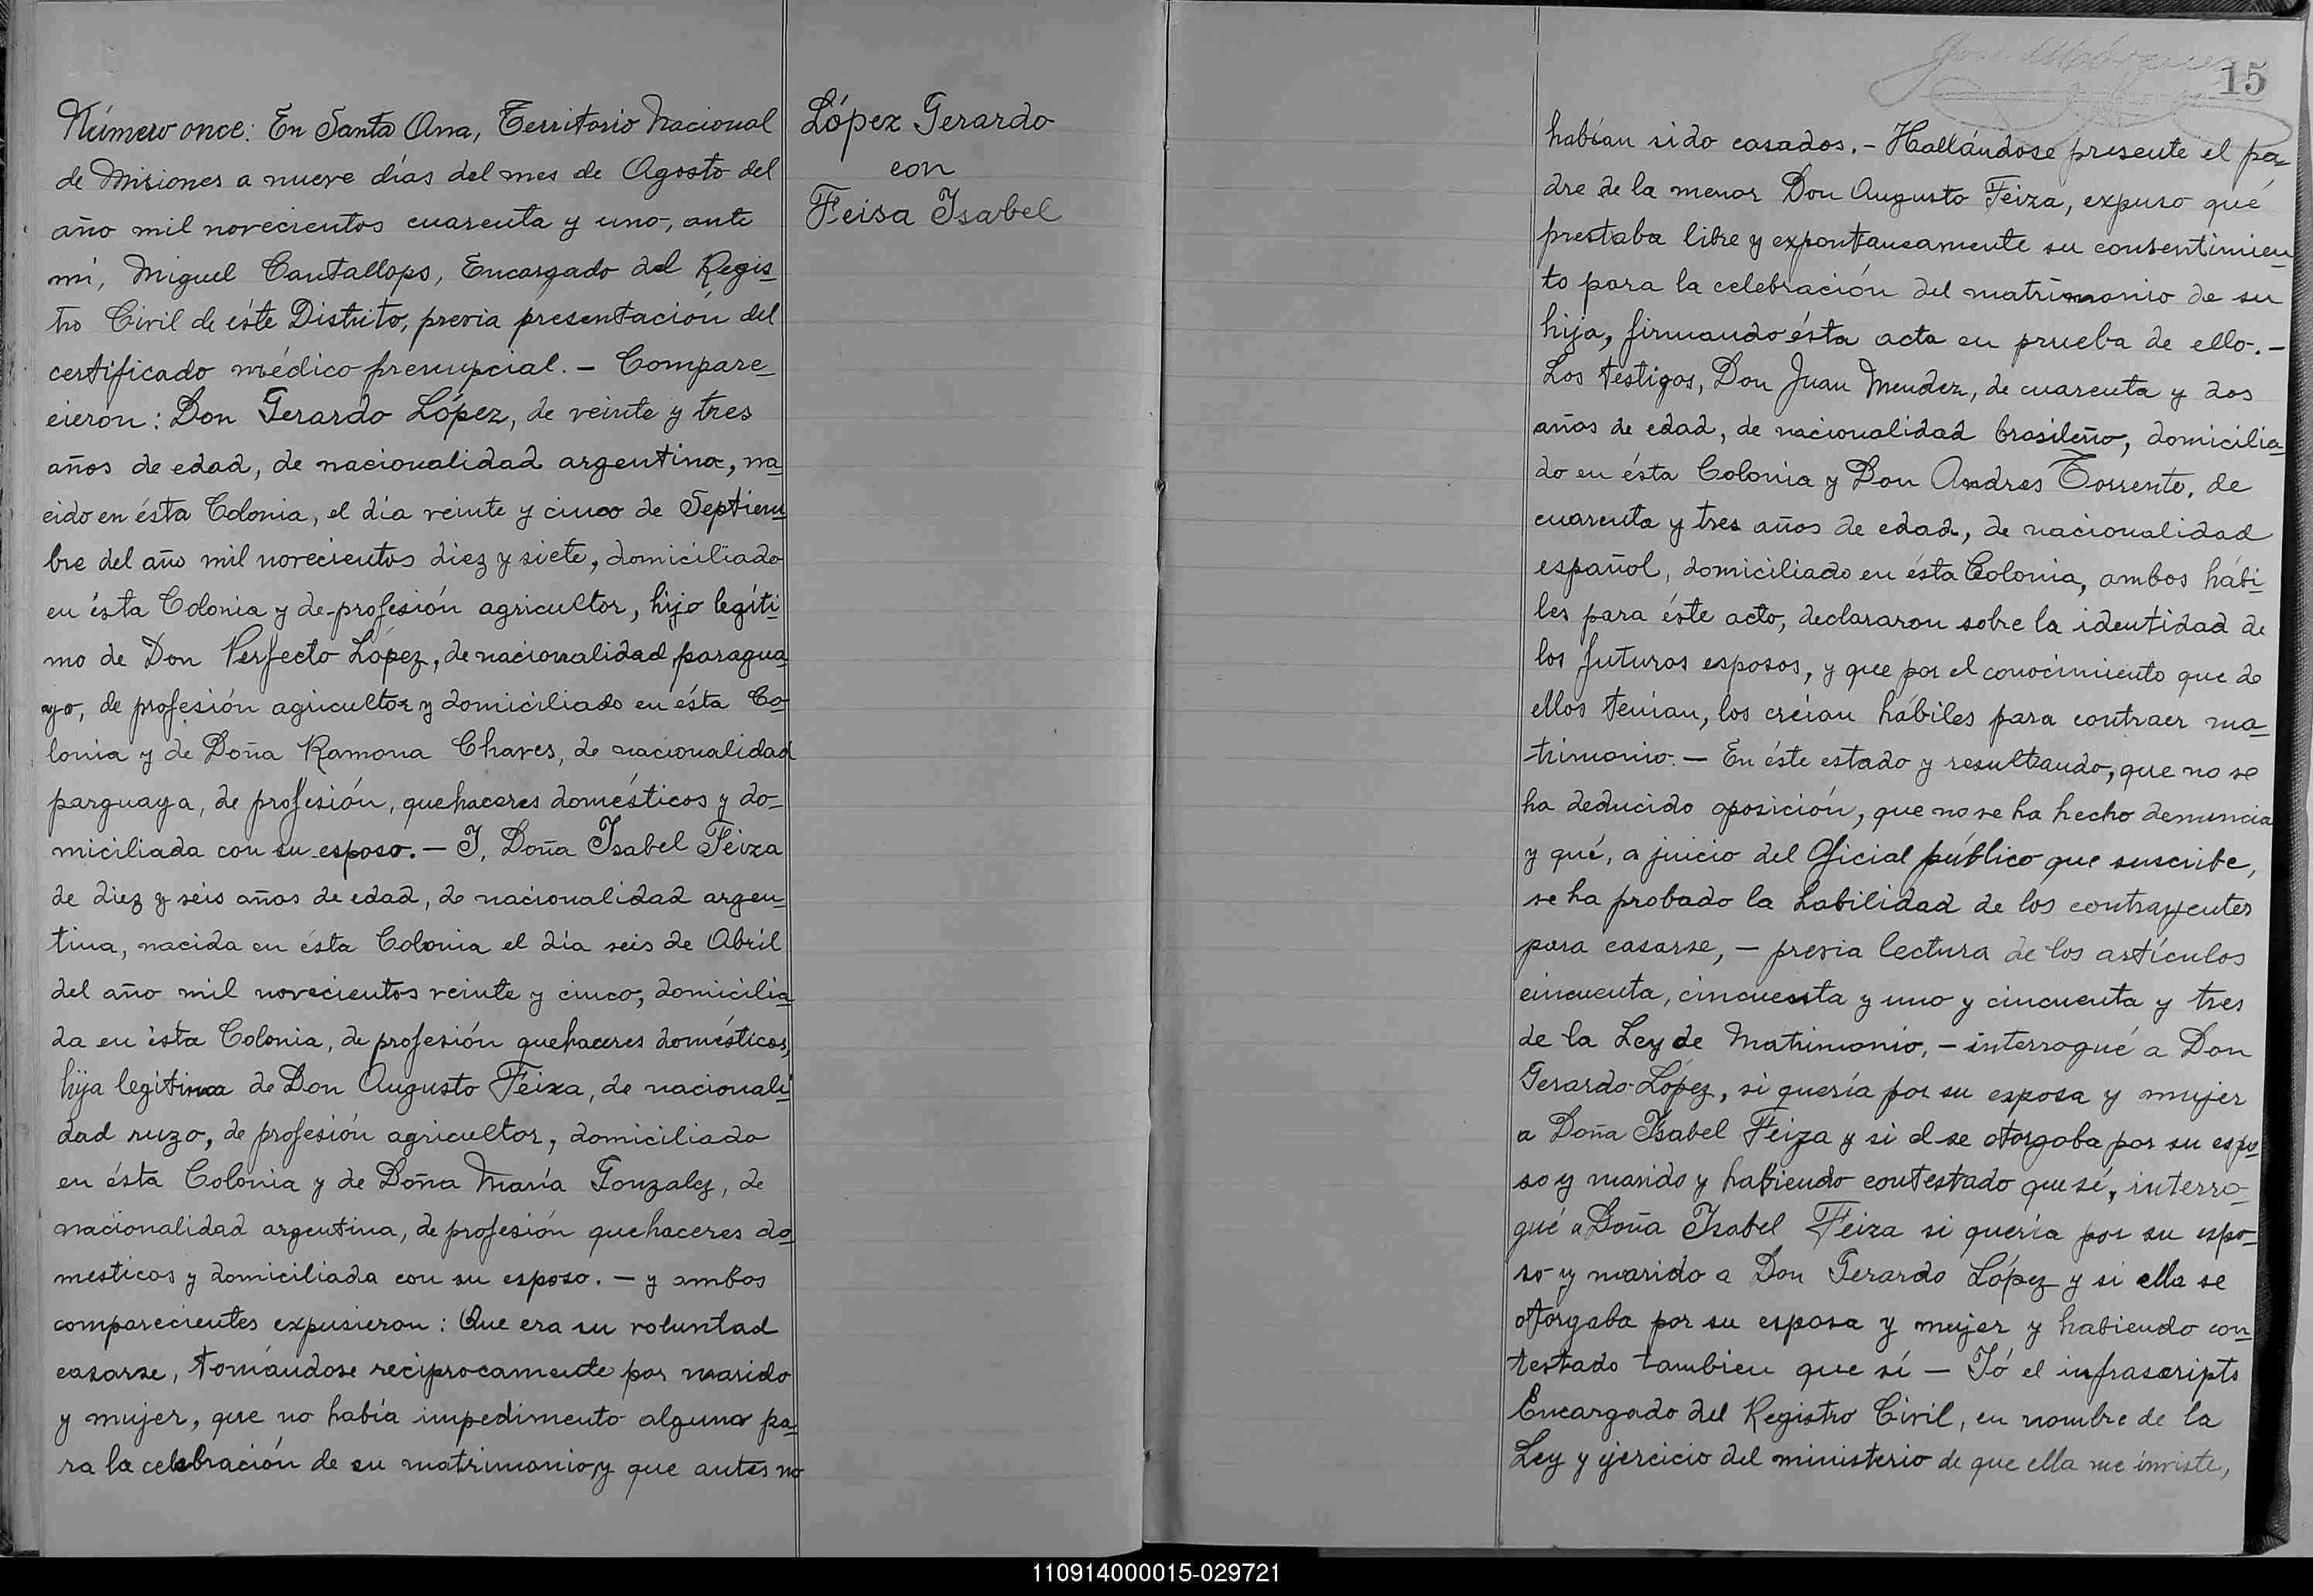 Número once: En Santa Ana, Territorio Nacional
de Misiones a nueve días del mes de Agosto del
año mil novecientos cuarenta y uno, ante
mi, Miguel Cantallops, Encargado del Regis_
tro Civil de éste Distrito, previa presentación del
certificado médico prenupcial. — Compare_
cieron: Don Gerardo López, de veinte y tres
años de edad, de nacionalidad argentina, na_
cido en ésta Colonia, el día veinte y cinco de Septiem_
bre del año mil novecientos diez y siete, domiciliado
en ésta Colonia y de profesión agricultor, hijo legíti_
mo de Don Perfecto López, de nacionalidad paragua_
yo, de profesión agricultor y domiciliado en ésta Co_
lonia y de Doña Ramona Chaves, de nacionalidad
parguaya, de profesión, quehaceres domésticos y do_
miciliada con su esposo. — I, Doña Isabel Feiza
de diez y seis años de edad, de nacionalidad argen_
tina, nacida en ésta Colonia el día seis de Abril
del año mil novecientos veinte y cinco, domicilia_
da en ésta Colonia, de profesión quehaceres domésticos,
hija legitima de Don Augusto Feiza, de nacionali_
dad ruzo, de profesión agricultor, domiciliado
en ésta Colonia y de Doña María Gonzalez, de
nacionalidad argentina, de profesión quehaceres do_
mesticos y domiciliada con su esposo. — y ambos
comparecientes expusieron: Que era su voluntad
casarse, tomándose reciprocamente por marido
y mujer, que no había impedimento alguno pa_
ra la celebración de su matrimonio, y que antes no
López Gerardo
con
Feisa Isabel
15
habían sido casados. — Hallándose presente el pa_
dre de la menor Don Augusto Feiza, expuso qué
prestaba libre y expontaneamente su consentimien_
to para la celebración del matrimonio de su
hija, firmando ésta acta en prueba de ello. —
Los testigos, Don Juan Mendez, de cuarenta y dos
años de edad, de nacionalidad brasileño, domicilia_
do en ésta Colonia y Don Andres Torrente, de
cuarenta y tres años de edad, de nacionalidad
español, domiciliado en ésta Colonia, ambos hábi_
les para éste acto, declararon sobre la identidad de
los futuros esposos, y que por el conocimiento que de
ellos tenian, los creían hábiles para contraer ma_
trimonio. — En éste estado y resultando, que no se
ha deducido oposición, que no se ha hecho denuncia
y qué, a juicio del Oficial público que suscribe,
se ha probado la habilidad de los contrayentes
para casarse, — previa lectura de los artículos
cincuenta, cincuenta y uno y cincuenta y tres
de la Ley de Matrimonio, — interrogué a Don
Gerardo López, si quería por su esposa y mujer
a Doña Isabel Feiza y si el se otorgaba por su espo_
so y marido y habiendo contestado que sí, interro_
gué a Doña Isabel Feiza si quería por su espo_
so y marido a Don Gerardo López y si ella se
otorgaba por su esposa y mujer y habiendo con_
testado tambien que sí — Yó el infrascripto
Encargado del Registro Civil, en nombre de la
Ley y ejercicio del ministerio de que ella me inviste,
110914000015-029721